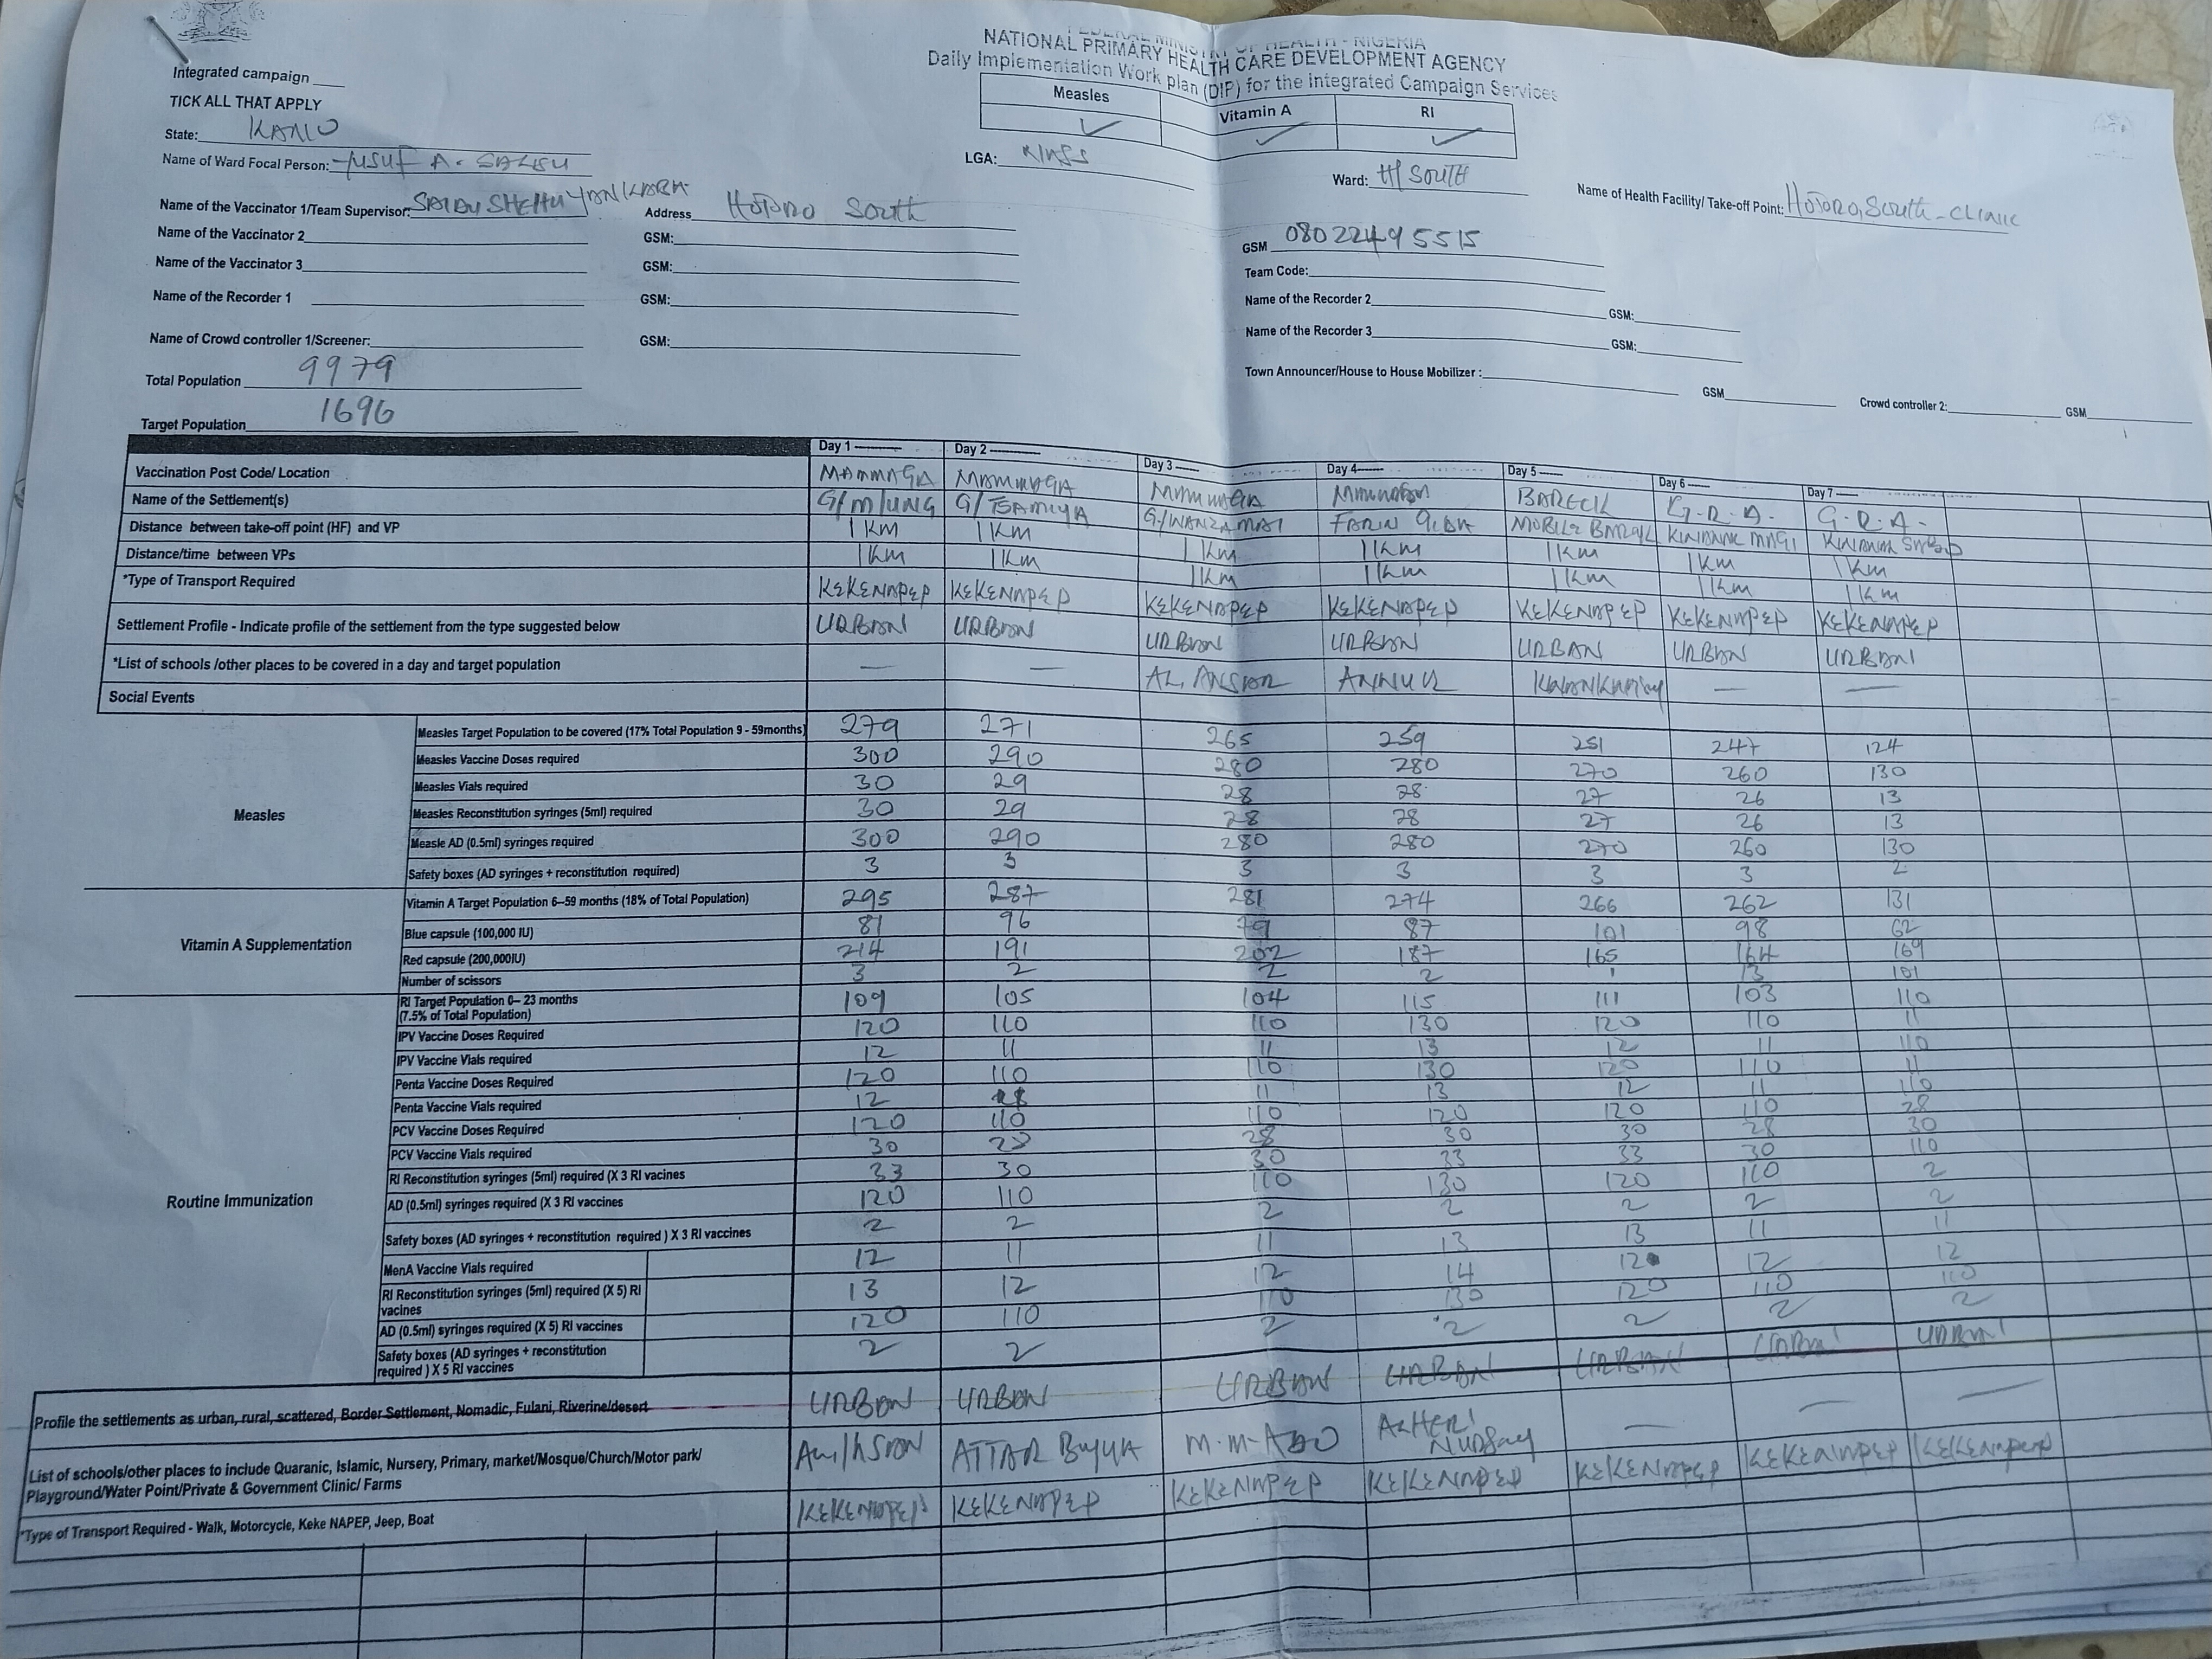 FEDERAL MINISTRY OF HEALTH - NIGERIA
NATIONAL PRIMARY HEALTH CARE DEVELOPMENT AGENCY
Daily Implementation Work plan (DIP) for the Integrated Campaign Services
Integrated campaign
TICK ALL THAT APPLY
Measles Vitamin A RI
✓ ✓ ✓
State: KANO
Name of Ward Focal Person: YUSUF A. SALISU
LGA:
Ward: H/SOUTH
Name of Health Facility/ Take-off Point: HOTORO, South-CLINIC
Name of the Vaccinator 1/Team Supervisor: SAIDU SHEHU YANKABA
Address HOTORO South
GSM 08022495515
Name of the Vaccinator 2 GSM:
Team Code:
Name of the Vaccinator 3 GSM:
Name of the Recorder 1 GSM:
Name of the Recorder 2 GSM:
Name of Crowd controller 1/Screener: GSM:
Name of the Recorder 3 GSM:
Total Population 9979
Town Announcer/House to House Mobilizer : GSM Crowd controller 2: GSM
Target Population 1696
Day 1 Day 2 Day 3 Day 4 Day 5 Day 6 Day 7
Vaccination Post Code/ Location MAMMAGA MAMMAGA MAMMAGA BARECK G.R.A. G.R.A-
Name of the Settlement(s) G/M/UNG G/TSAMIYA G/WANZAMAI FARIN GIDA
Distance between take-off point (HF) and VP 1KM 1KM 1KM 1KM 1KM 1KM 1KM
Distance/time between VPs 1KM 1KM 1KM 1KM 1KM 1KM 1KM
*Type of Transport Required KEKENAPEP KEKENAPEP KEKENAPEP KEKENAPEP KEKENAPEP KEKENAPEP KEKENAPEP
Settlement Profile - Indicate profile of the settlement from the type suggested below URBAN URBAN URBAN URBAN URBAN URBAN URBAN
*List of schools /other places to be covered in a day and target population — — AL, ANSAR ANNUR — —
Social Events
Measles
Measles Target Population to be covered (17% Total Population 9 - 59months) 279 271 265 259 251 247 124
Measles Vaccine Doses required 300 290 280 280 270 260 130
Measles Vials required 30 29 28 28 27 26 13
Measles Reconstitution syringes (5ml) required 30 29 28 28 27 26 13
Measle AD (0.5ml) syringes required 300 290 280 280 270 260 130
Safety boxes (AD syringes + reconstitution required) 3 3 3 3 3 3 2
Vitamin A Supplementation
Vitamin A Target Population 6–59 months (18% of Total Population) 295 287 281 274 266 262 131
Blue capsule (100,000 IU) 81 96 79 87 101 98 62
Red capsule (200,000IU) 214 191 202 187 165 164 169
Number of scissors 3 2 2 2 1 13 101
Routine Immunization
RI Target Population 0– 23 months
(7.5% of Total Population) 109 105 104 115 111 103 110
IPV Vaccine Doses Required 120 110 110 130 120 110 11
IPV Vaccine Vials required 12 11 11 13 12 11 110
Penta Vaccine Doses Required 120 110 110 130 120 110 11
Penta Vaccine Vials required 12 11 13 12 11 110
PCV Vaccine Doses Required 120 110 110 120 120 110 28
PCV Vaccine Vials required 30 28 28 30 30 28 30
RI Reconstitution syringes (5ml) required (X 3 RI vacines 33 30 30 33 33 30 110
AD (0.5ml) syringes required (X 3 RI vaccines 120 110 110 130 120 110 2
Safety boxes (AD syringes + reconstitution required ) X 3 RI vaccines 2 2 2 2 2 2 2
MenA Vaccine Vials required 12 11 11 13 13 11 11
RI Reconstitution syringes (5ml) required (X 5) RI
vacines 13 12 12 14 12 12 12
AD (0.5ml) syringes required (X 5) RI vaccines 120 110 110 130 120 110 110
Safety boxes (AD syringes + reconstitution
required ) X 5 RI vaccines 2 2 2 2 2 2 2
Profile the settlements as urban, rural, scattered, Border Settlement, Nomadic, Fulani, Riverine/desert URBAN URBAN URBAN URBAN URBAN URBAN URBAN
List of schools/other places to include Quaranic, Islamic, Nursery, Primary, market/Mosque/Church/Motor park/
Playground/Water Point/Private & Government Clinic/ Farms ATTAR BUYUA — — —
*Type of Transport Required - Walk, Motorcycle, Keke NAPEP, Jeep, Boat KEKENAPEP KEKENAPEP KEKENAPEP KEKENAPEP KEKENAPEP KEKENAPEP KEKENAPEP